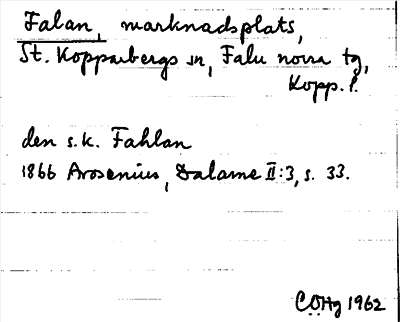 Falan, marknadsplats,
St. Kopparbergs sn, Falu norra tg,
Kopp. l.
den s.k. Fahlan
1866 Arosenius, Dalarne II:3, s. 33.
CÖHg 1962